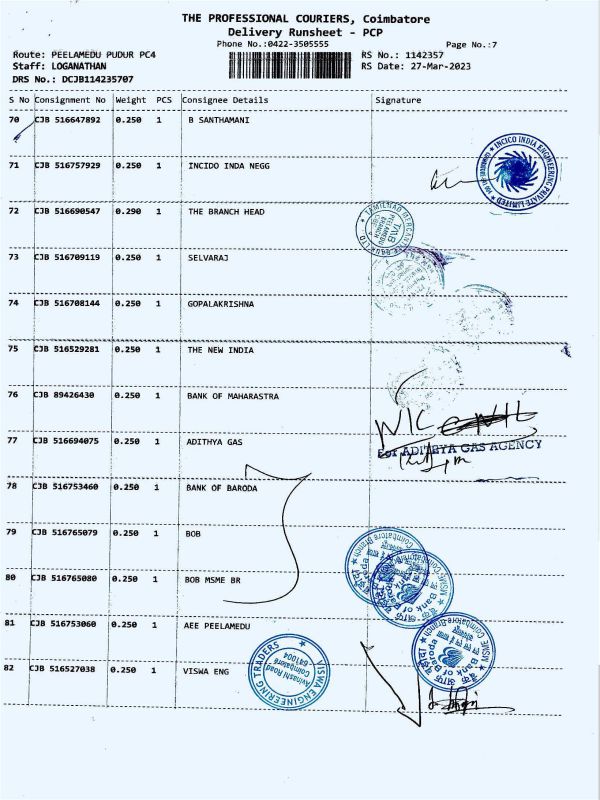 THE PROFESSIONAL COURIERS, Coimbatore
Delivery Runsheet - PCP
Phone No.:0422-3505555
Page No.:7
Route: PEELAMEDU PUDUR PC4
RS No.: 1142357
Staff: LOGANATHAN
RS Date: 27-Mar-2023
DRS No.: DCJB114235707
S No Consignment No Weight PCS Consignee Details Signature
70 CJB 516647892 0.250 1 B SANTHAMANI
71 CJB 516757929 0.250 1 INCIDO INDA NEGG
INCICO INDIA ENGINEERING PRIVATE LIMITED
72 CJB 516690547 0.290 1 THE BRANCH HEAD
TAMILNAD MERCANTILE BANK LTD
TMB
PEELAMEDU
BRANCH
73 CJB 516709119 0.250 1 SELVARAJ
74 CJB 516708144 0.250 1 GOPALAKRISHNA
75 CJB 516529281 0.250 1 THE NEW INDIA
76 CJB 89426430 0.250 1 BANK OF MAHARASTRA
77 CJB 516694075 0.250 1 ADITHYA GAS
For ADITHYA GAS AGENCY
78 CJB 516753460 0.250 1 BANK OF BARODA
79 CJB 516765079 0.250 1 BOB
80 CJB 516765080 0.250 1 BOB MSME BR
Bank of Baroda
81 CJB 516753060 0.250 1 AEE PEELAMEDU
Bank of Baroda
82 CJB 516527038 0.250 1 VISWA ENG
VISWA ENGINEERING TRADERS
Avinashi Road
Coimbatore
641004